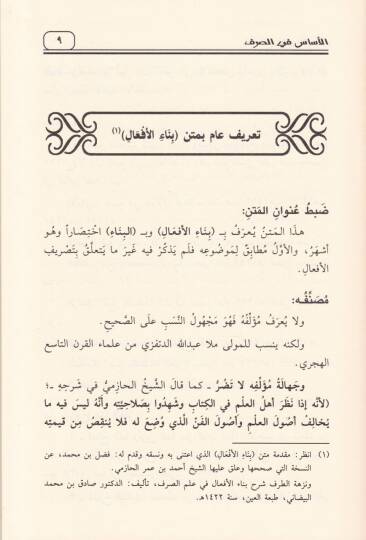 الأساس في الصرف
٩
تعريف عام بمتن (بِنَاءِ الأَفْعَالِ)(١)
ضَبطُ عُنوانِ المَتنِ:
هذَا المَتنُ يُعرَفُ بِـ (بِنَاءِ الأَفعَالِ) وبـ (البِنَاءِ) اختِصَاراً وهُو
أشهَرُ، والأَوَّلُ مُطابِقٌ لِمَوضُوعِه فَلَم يَذكُرْ فيه غَيرَ ما يَتَعلَّقُ بِتَصْرِيفِ
الأفعالِ.
مُصَنِّفُه:
ولا يُعرَفُ مُؤلِّفُه فَهُوَ مَجْهُولُ النَّسَبِ علَى الصَّحيحِ.
ولكنه ينسب للمولى ملا عبدالله الدنقزي من علماء القرن التاسع
الهجري.
وجَهالَةُ مُؤَلِّفِه لا تَضُرُّ ـ كما قالَ الشَّيخُ الحازِميُّ في شَرحِهِ ـ؛
(لأنَّه إذَا نَظَرَ أهلُ العلْمِ في الكِتابِ وشَهدُوا بِصَلاحِيَّتِه وأنَّهُ ليسَ فيه ما
يُخالِفُ أصُولَ العلْمِ وأصُولَ الفَنِّ الَّذي وُضِعَ له فلا يُنقِصُ مِن قيمَتِه
(١) انظر: مقدمة متن (بِنَاءِ الأفْعَالِ) الذي اعتنى به ونسقه وقدم له: فضل بن محمد، عن
النسخة التي صححها وعلق عليها الشيخ أحمد بن عمر الحازمي.
ونزهة الطرف شرح بناء الأفعال في علم الصرف، تأليف: الدكتور صادق بن محمد
البيضاني، طبعة العين، سنة ١٤٢٢هـ.